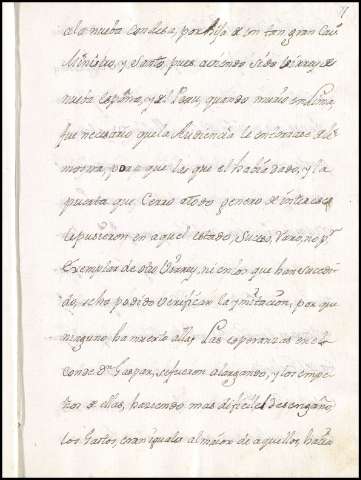 a la nueba condesa, por hija de un tan gran
Ministro, y Santo, pues aviendo sido Virrey de
nueba España, y del Peru, quando murio en Lima,
fue necesario que la Audiencia le enterase de li
mosna, para que las que el había dado, y la
puerta que Cerro a todo genero de intereses
le pusieron en aquel estado, Suceso, Raro, no pr
Exemplar de otro Virrey, ni en los que han sucedi
do, se ha podido verificar la ymitacion, por que
ninguno ha muerto alla, Las esperanzas en el
conde Dn Gaspar, se fueron alargando, y los empe
ños de ellas, haciendo mas dificil el desengaño,
los Gastos, eran iguales al maior de aquellos, hasta